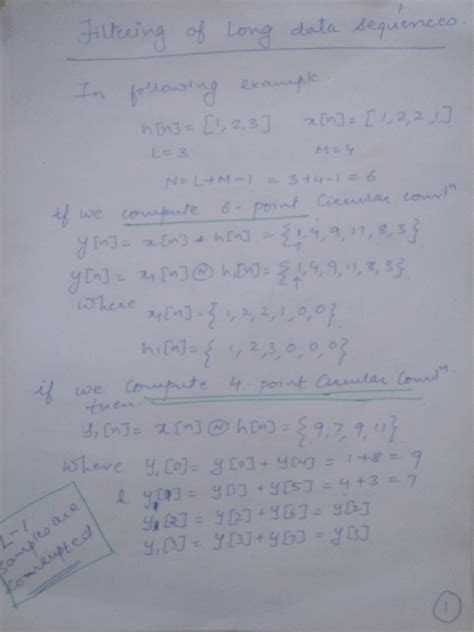 Filtering of Long data sequences.
In following example.
h[n] = [1,2,3] x[n] = [1,2,2,1]
L=3 M=4
N = L+M-1 = 3+4-1 = 6
if we compute 6-point Circular Conv^n.
y[n] = x[n] * h[n] = {1,4,9,11,8,3}
↑
y[n] = x₁[n] Ⓝ h₁[n] = {1,4,9,11,8,3}
↑
where
x₁[n] = { 1, 2, 2, 1, 0, 0}
h₁[n] = { 1, 2, 3, 0, 0, 0}
if we compute 4-point Circular Conv^n.
then
y₁[n] = x[n] Ⓝ h[n] = {9,7,9,11}
where y₁[0] = y[0] + y[4] = 1+8 = 9
& y₁[1] = y[1] + y[5] = 4+3 = 7
y₁[2] = y[2] + y[6] = y[2]
y₁[3] = y[3] + y[7] = y[3]
L-1
samples are
corrupted
1